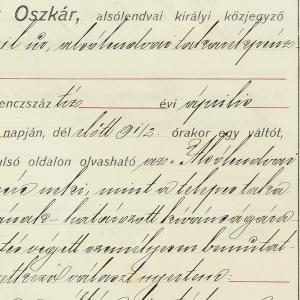 Oszkár, alsólendvai királyi közjegyző
alsólendvai takarékpénz-
enczszáz tíz évi április
napján, dél előtt 9 1/2 órakor egy váltót,
ulsó oldalon olvasható az "Alsólendvai
neki, mint a telepe taka
határozott kívánságára
tés végett személyesen bemutat-
választ nyertem: